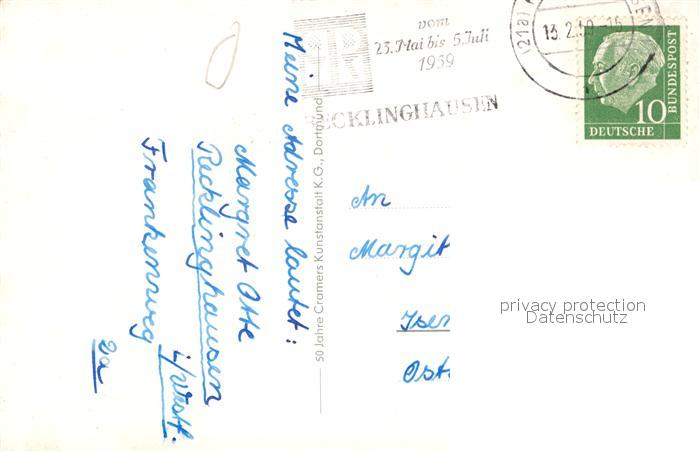 vom
23. Mai bis 5. Juli
1959
RECKLINGHAUSEN
(21a)
13.2.59
10
DEUTSCHE
BUNDESPOST
Meine Adresse lautet:
Margret Otte
Recklinghausen
i/Westf.
Frankenweg
2a
50 Jahre Cramers Kunstanstalt K.G., Dortmund
An
Margit
Iser
Ost
privacy protection
Datenschutz